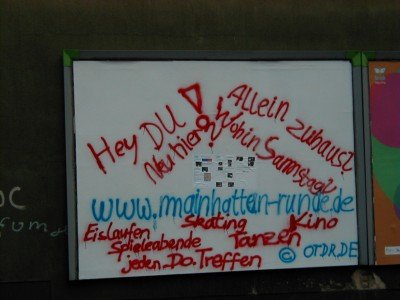 Hey DU!
Neu hier?
Allein zuhaus?
Wohin Samstags?
www.mainhattan-runde.de
Eislaufen
Skating
Kino
Spieleabende
Tanzen
jeden Do. Treffen
© OTDR.DE